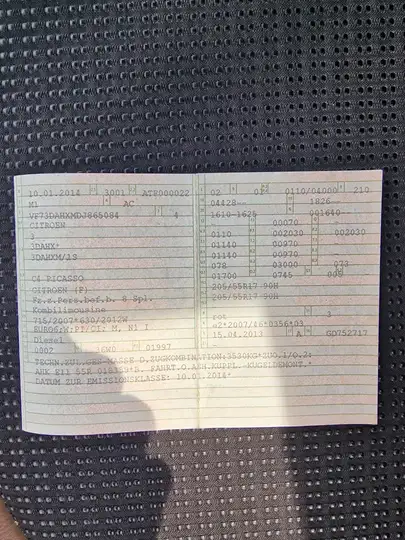 10.01.2014 3001 ATE000022
M1 AC
VF73DAHXMDJ865084 4
CITROEN
3
3DAHX*
3DAHXM/1S
C4 PICASSO
CITROEN (F)
Fz.z.Pers.bef.b. 8 Spl.
Kombilimousine
715/2007*630/2012W
EURO5;W;PI/CI; M, N1 I
Diesel
0002 36W0 01997
02 01 0110/04000 210
04428-- 1826--
1610-1625 001640-
00070
0110 002030 002030
01140 00970
01140 00970
078 03000 073
01700 0745 005
205/55R17 90H
205/55R17 90H
rot 3
e2*2007/46*0356*03
15.04.2013 A GO752717
TECHN.ZUL.GES-MASSE D.ZUGKOMBINATION:3530KG*ZUO.1/0.2:
DATUM ZUR EMISSIONSKLASSE: 10.01.2014*